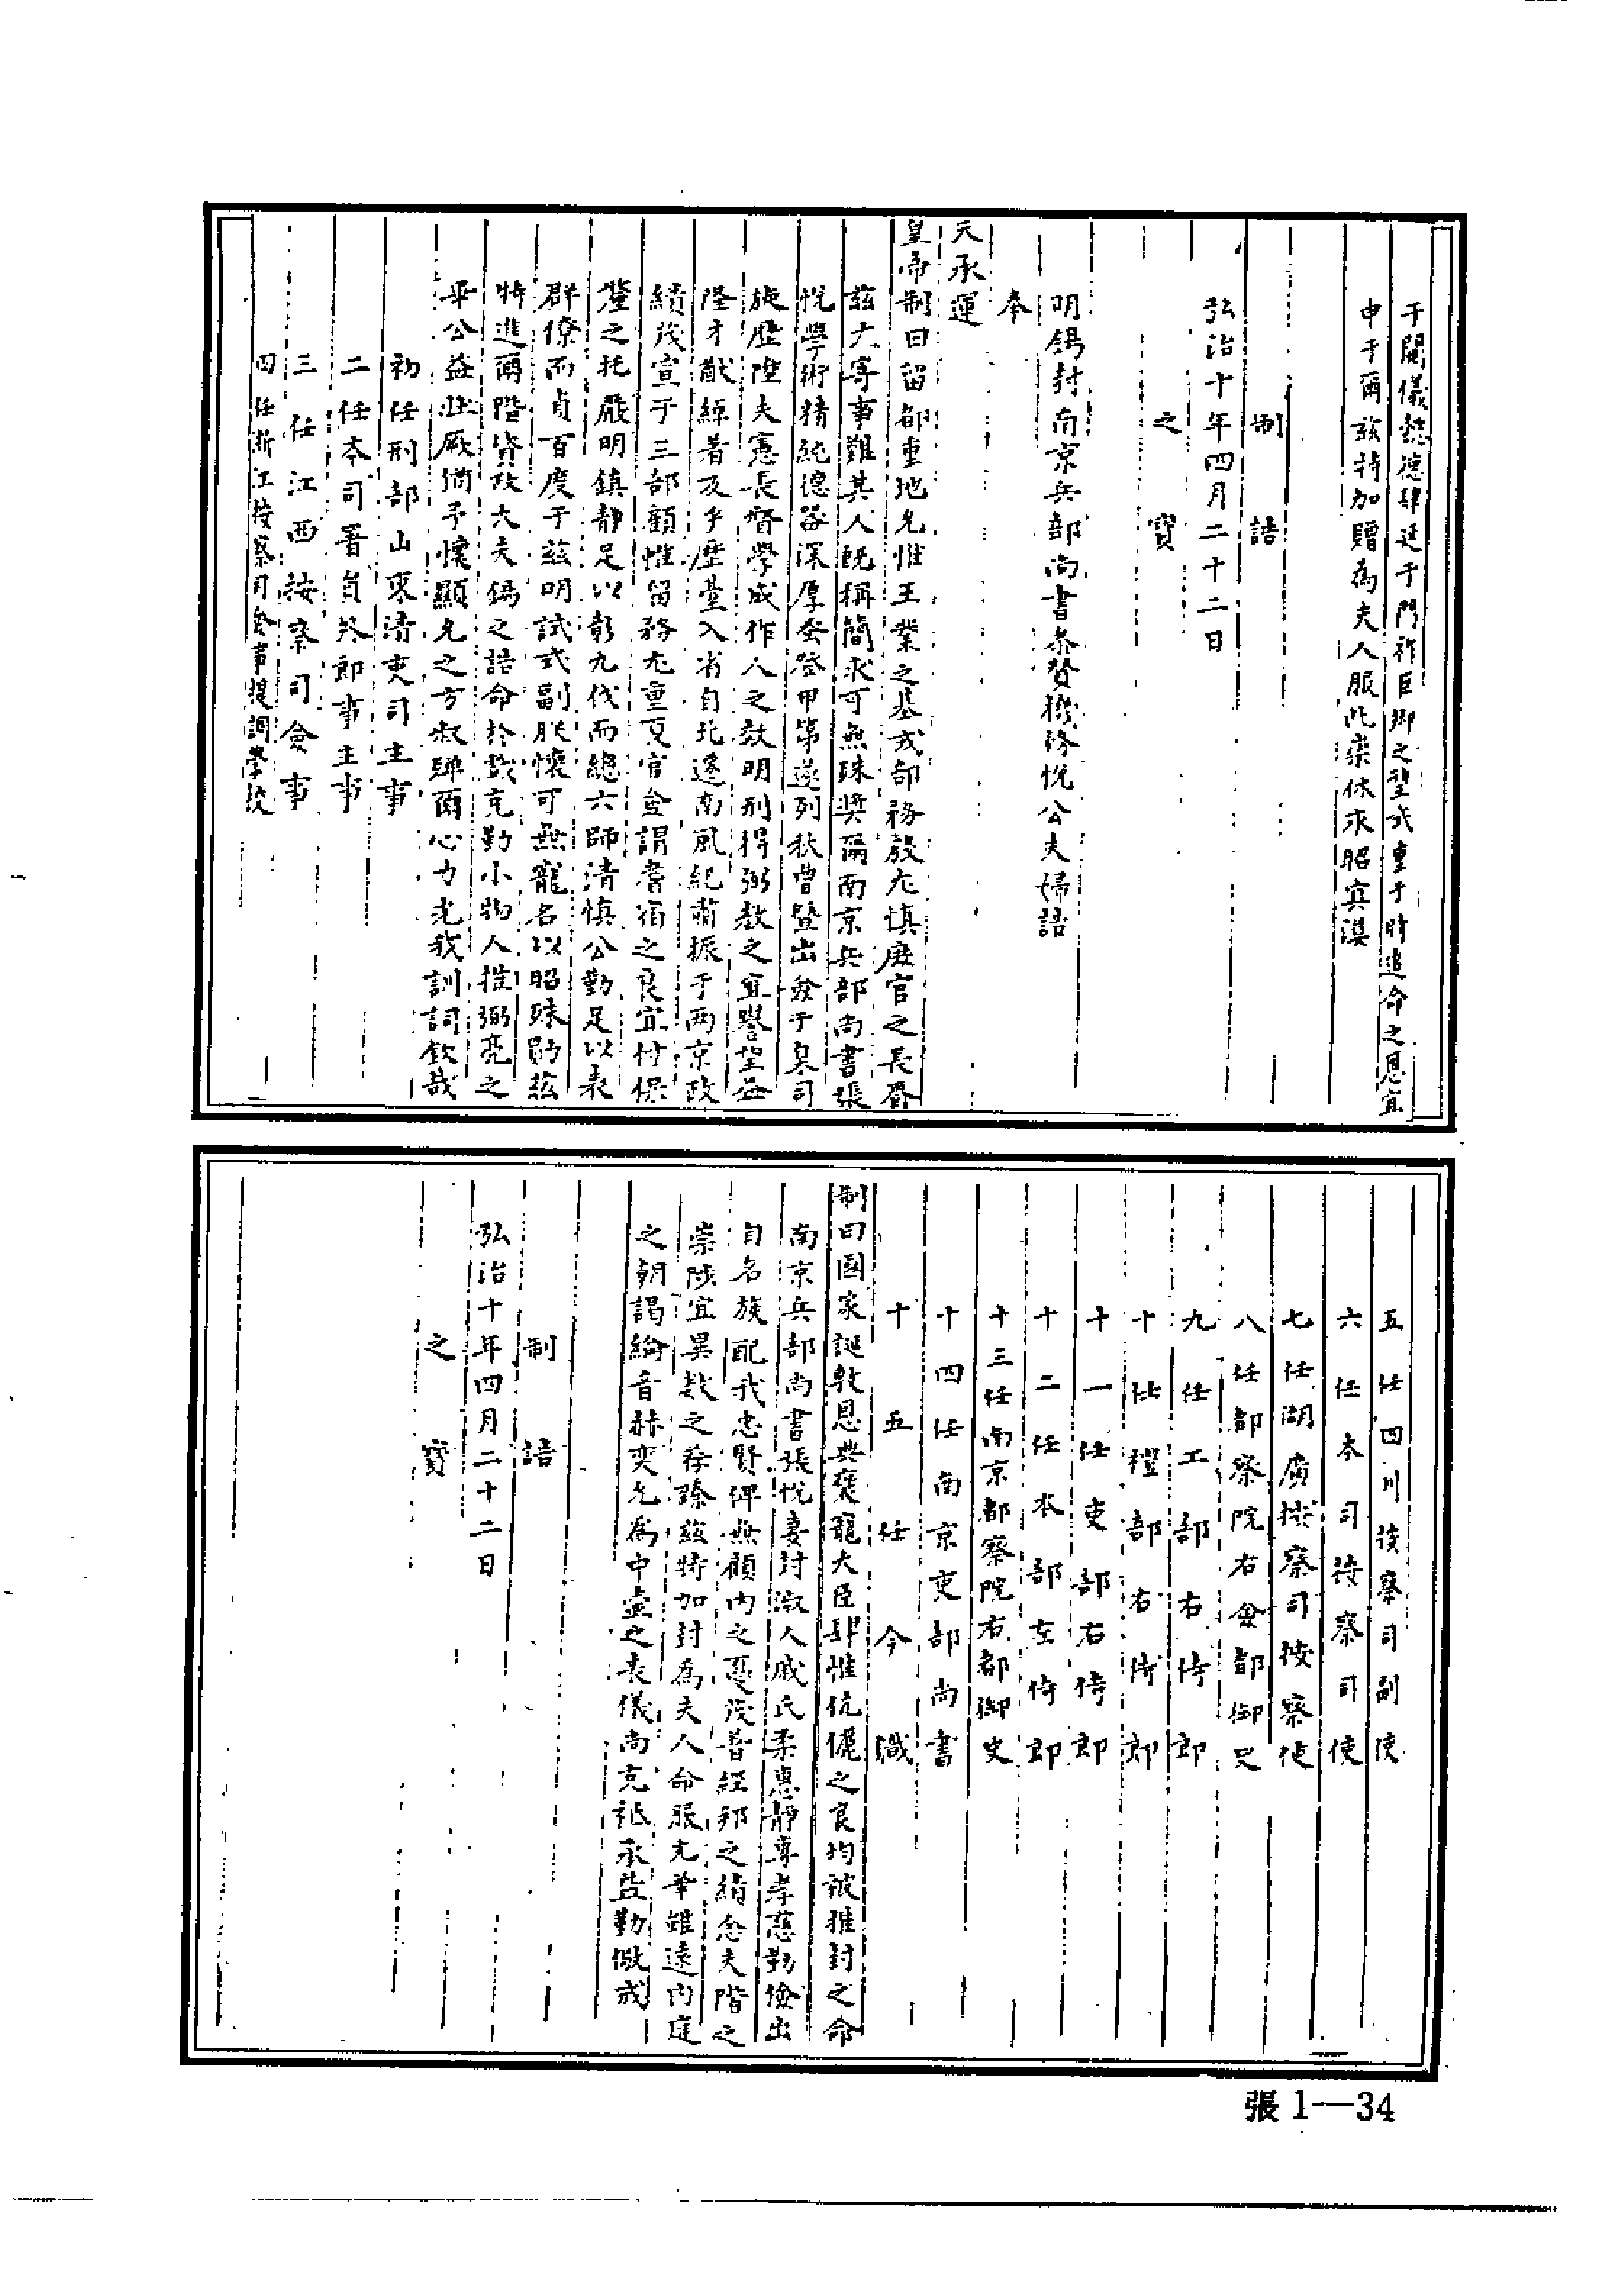 于閫儀懿德肆廷于門祚臣卿之望式重于時追命之恩宜
申于爾茲特加贈為夫人服此崇休永昭冥漠
制誥
弘治十年四月二十二日
之寶
明錫封南京兵部尚書參贊機務悅公夫婦誥
奉
天承運
皇帝制曰留都重地允惟王業之基戎部務殷尤慎庶官之長眷
茲大寄事難其人既稱簡求可無殊奬爾南京兵部尚書張
悅學術精純德器深厚蚤登甲第遂列秋曹暨出僉于臬司
旋歷陞夫憲長督學成作人之效明刑得弼教之宜譽望益
隆才猷綽著及乎歷臺入省自北遷南風紀肅振于兩京政
績茂宣于三部顧惟留務尤重夏官僉謂耆宿之良宜付保
釐之托嚴明鎮靜足以彰九伐而總六師清慎公勤足以表
群僚而貞百度于茲明試式副朕懷可無寵名以昭殊勛茲
特進爾階資政大夫錫之誥命於戲克勤小物人推弼亮之
畢公益壯厥猶予懷顯允之方叔殫爾心力光我訓詞欽哉
初任刑部山東清吏司主事
二任本司署員外郎事主事
三任江西按察司僉事
四任浙江按察司僉事提調學校
五任四川按察司副使
六任本司按察司使
七任湖廣按察司按察使
八任都察院右僉都御史
九任工部右侍郎
十任禮部右侍郎
十一任吏部右侍郎
十二任本部左侍郎
十三任南京都察院右都御史
十四任南京吏部尚書
十五任今職
制曰國家誕敦恩典褒寵大臣肆惟伉儷之良均被推封之命
南京兵部尚書張悅妻封淑人戚氏柔惠靜專孝慈勤儉出
自名族配我忠賢俾無顧內之憂茂著經邦之績念夫階之
崇陟宜異數之荐臻茲特加封為夫人命服尤華雖遠內庭
之朝謁綸音赫奕允為中壼之表儀尚克祗承益勤儆戒
制誥
弘治十年四月二十二日
之寶
張1—34